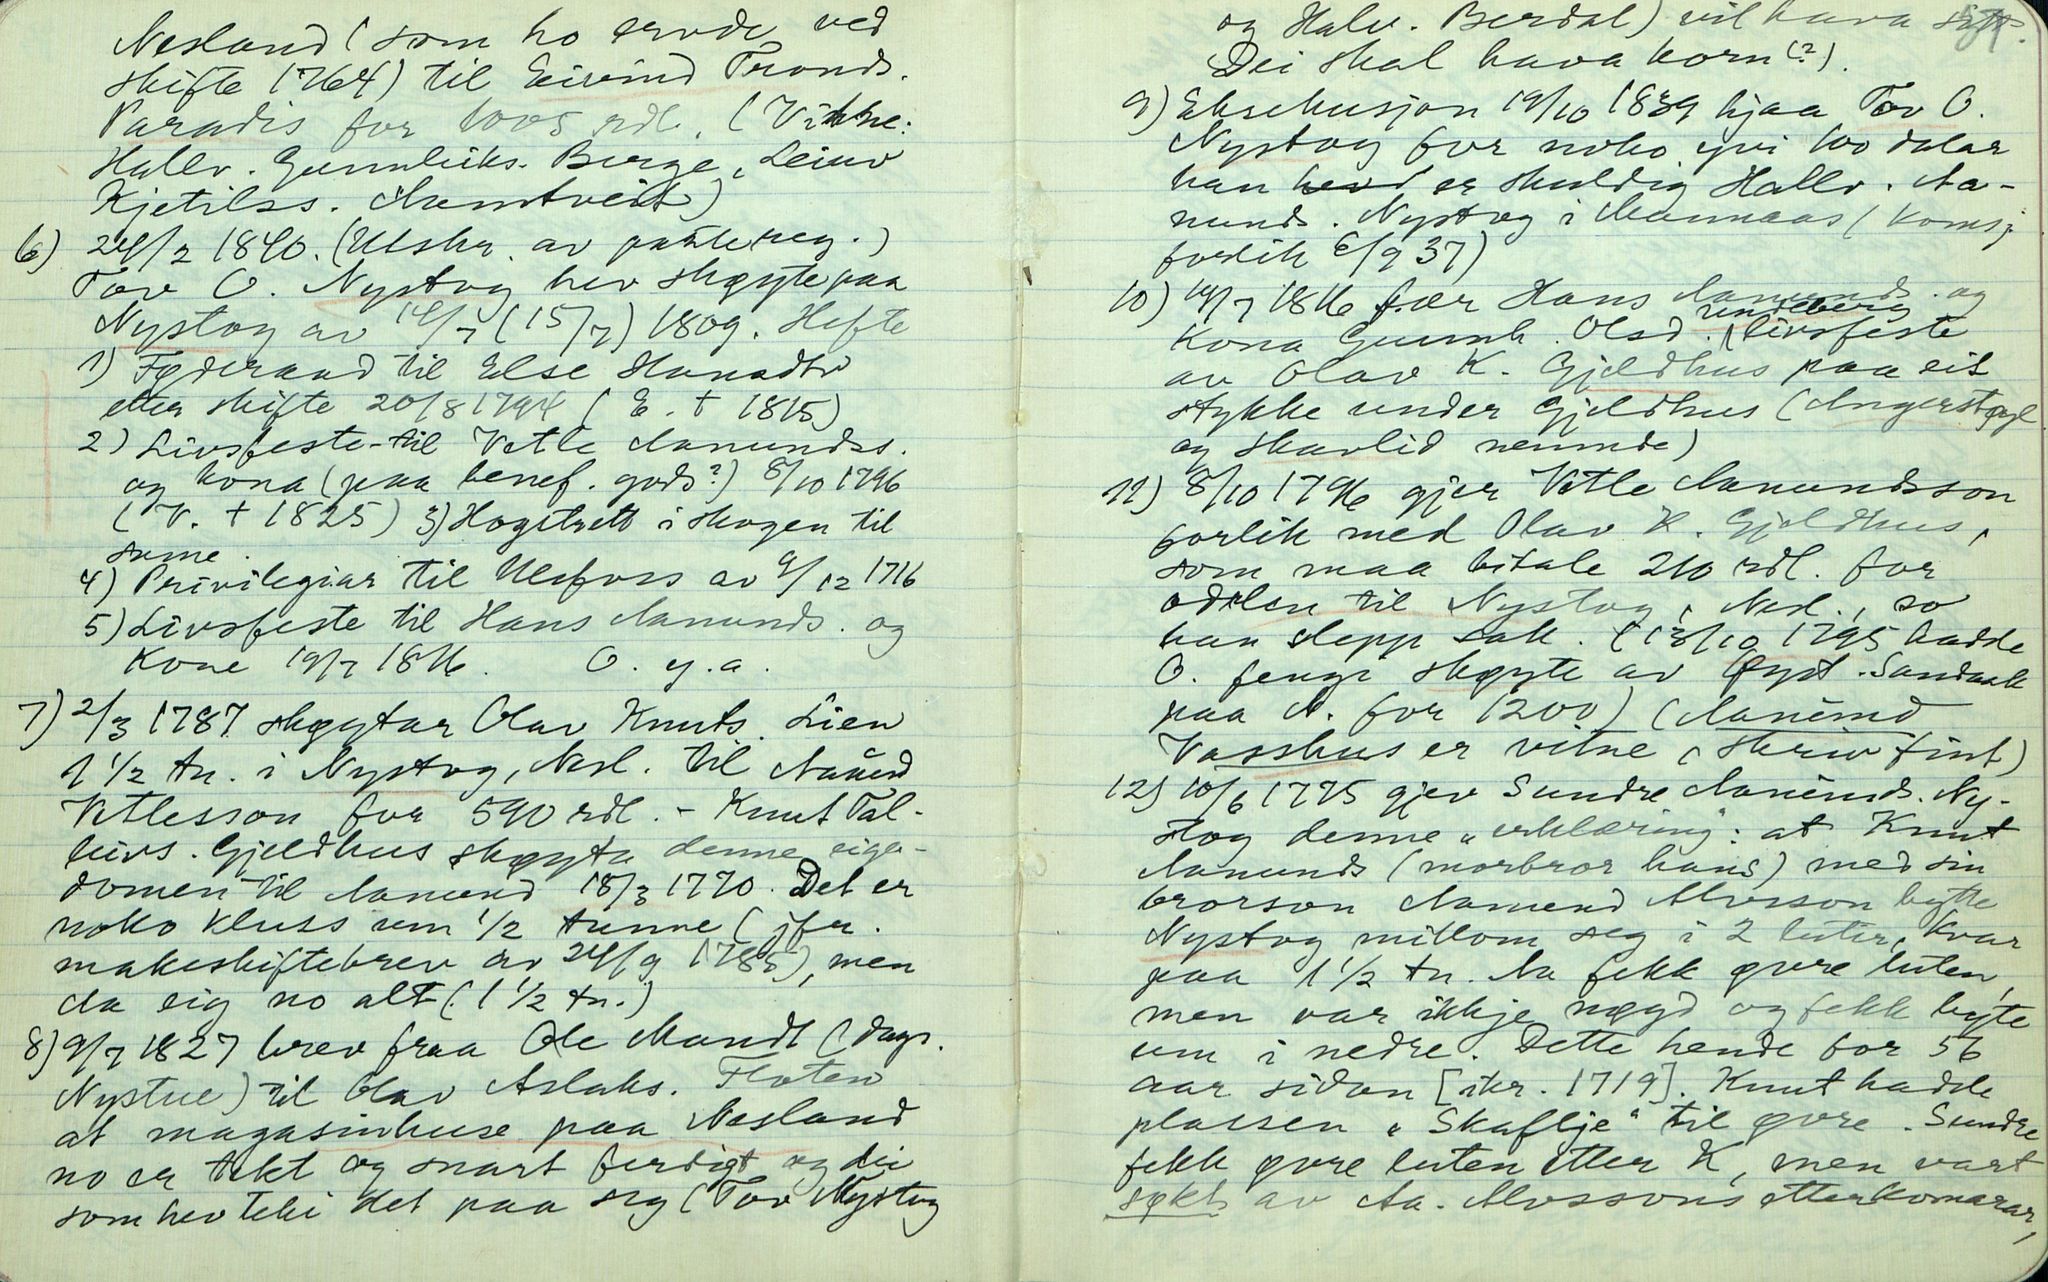 Nesland (som ho ervde ved
skifte 1764) til Eivind Tronds.
Paradis for 1005 rdl. (Vitne:
Hallv. Gunnleiks. Berge, Leiuv
Kjetilss. Memtveit)
6) 24/2 1840. (Utskr. av pantereg.)
Tov O. Nystog hev skøyte paa
Nystog av 14/7 (15/7) 1809. Hefte
1) Føderaad til Else Hansdtr
etter skifte 20/8 1794 (E. + 1815)
2) Livsfeste til Vetle Aanundss.
og kona (paa benef. gods?) 8/10 1796
(V. + 1825) 3) Hogstrett i skogen til
same.
4) Privilegiar til Ulefoss av 9/12 1716
5) Livsfeste til Hans Aanunds. og
Kone 19/7 1816. O. y. a.
7) 2/3 1787 skøytar Olav Knuts. Lien
1 1/2 tn. i Nystog, Nesl. til Aanund
Vetlesson for 590 rdl. - Knut Tal-
leivs. Gjeldhus skøyta denne eige-
domen til Aanund 18/3 1770. Det er
noko kluss um 1/2 tunne (jfr.
makeskiftebrev av 24/9 1785), men
da eig no alt (1 1/2 tn.)
8) 9/7 1827 brev fraa Ole Mandt (dags.
Nystue) til Olav Aslaks. Floten
at magasinhuse paa Nesland
no er tekt og snart ferdigt og dei
som hev teki det paa seg (Tov Nystog
og Halv. Berdal) vil hava sitt.
Dei skal hava korn (?).
9) Eksekusjon 19/10 1839 hjaa Tov O.
Nystog for noko yvi 100 dalar
han hevd er skuldig Hallv. Aa-
nunds. Nystog i Mannaas (Komsj.
forlik 6/9 37)
10) 14/7 1816 fær Hans Aanunds. og
Kona Gunnh. Olsd. Rindeberg livsfeste
av Olav K. Gjeldhus paa eit
stykke under Gjeldhus (Angerstøyl
og Skarlid nemnde)
11) 8/10 1796 gjer Vetle Aanundsson
forlik med Olav K. Gjeldhus,
som maa betale 210 rdl. for
odelen til Nystog, Nesl., so
han slepp sak. (13/10 1795 hadde
O. fenge skøyte av Øyst. Sandaak
paa N. for 1200) (Aanund
Vasshus er vitne, skriv fint)
12) 10/6 1775 gjev Sundre Aanunds. Ny-
stog denne "erklæring": at Knut
Aanunds (morbror hans) med sin
brorson Aamund Alvsson bytte
Nystog millom seg i 2 luter, kvar
paa 1 1/2 tn. Aa fekk øvre luten,
men var ikkje nøgd og fekk byte
um i nedre. Dette hende for 56
aar sidan [ikr. 1719]. Knut hadde
plassen "Skaflje" til øvre. Sundre
fekk øvre luten etter K, men vart
søkt av Aa. Alvssons etterkomarar,